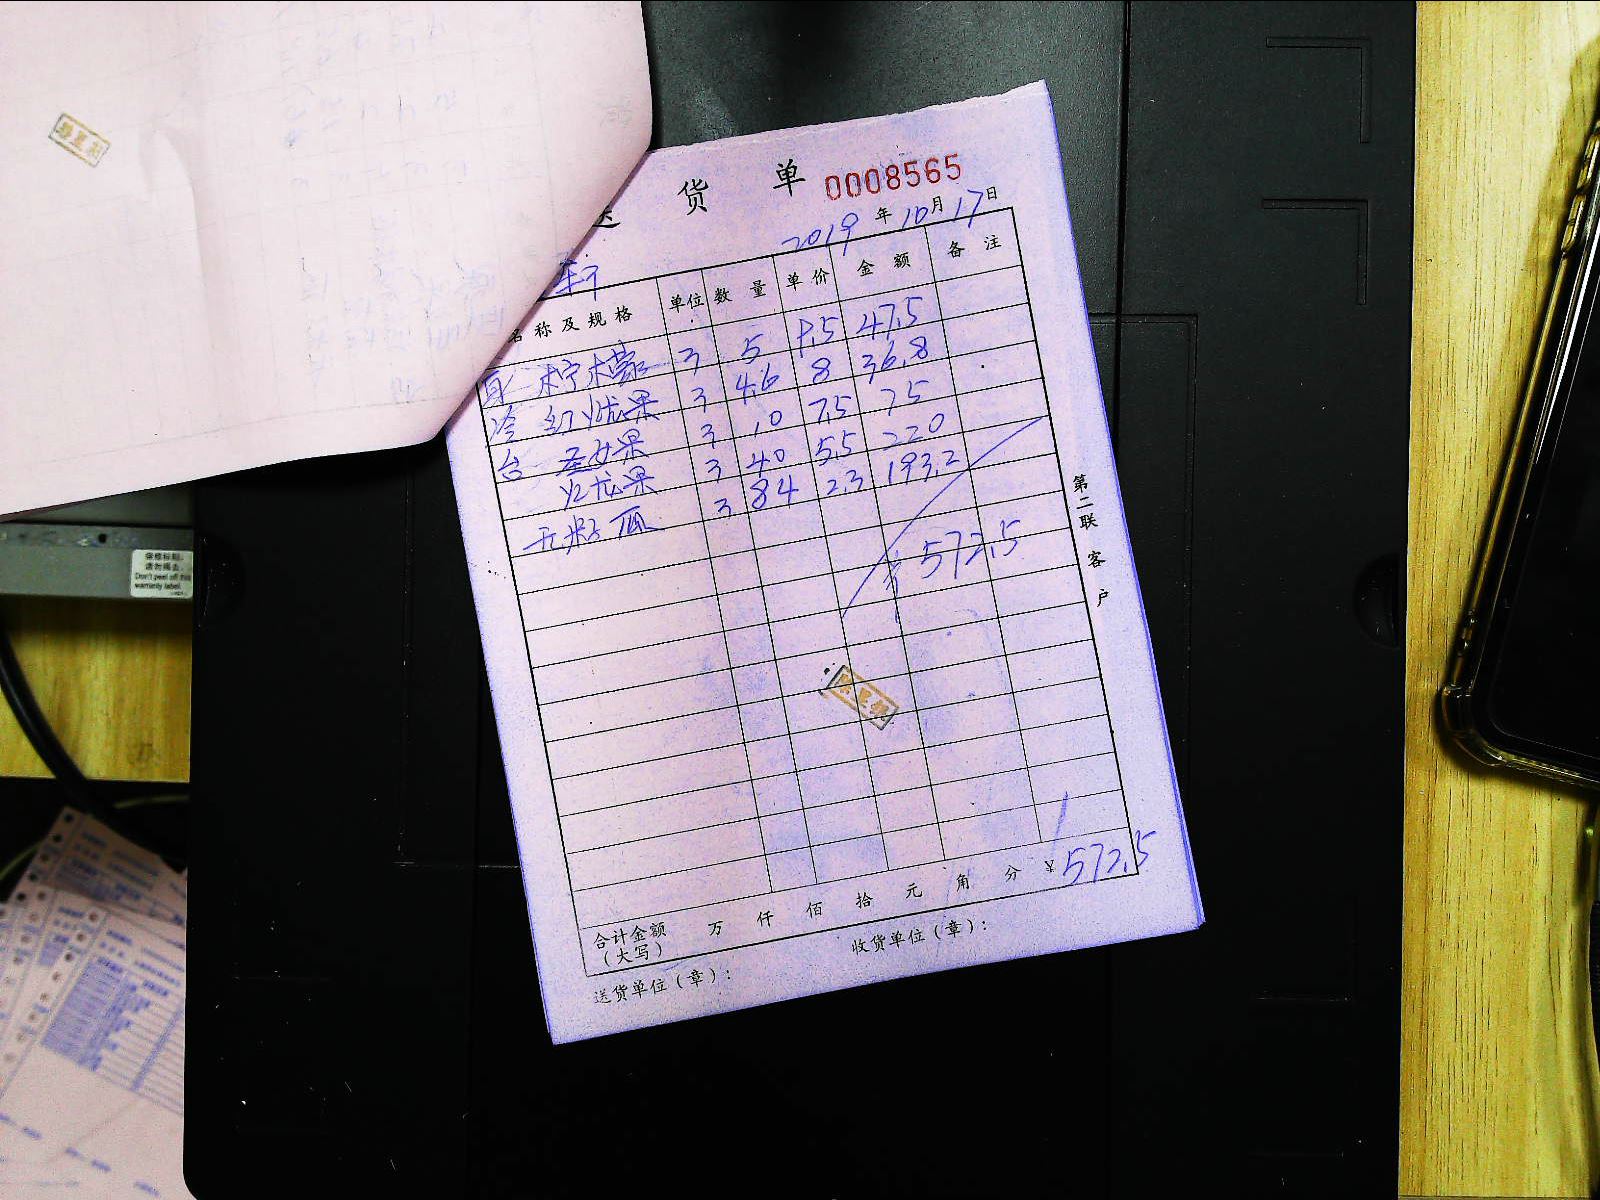 送 货 单 0008565
2019 年 10 月 17 日
名称及规格 单位 数量 单价 金额 备注
柠檬 3 5 9.5 47.5
冷 红火龙果 3 4.6 8 36.8
台 圣女果 3 10 7.5 75
火龙果 3 40 5.5 220
无籽瓜 3 84 2.3 193.2
572.5
第二联 客户
合计金额（大写） 万 仟 佰 拾 元 角 分 ¥572.5
送货单位（章）： 收货单位（章）：
Don't peel off this
warranty label.